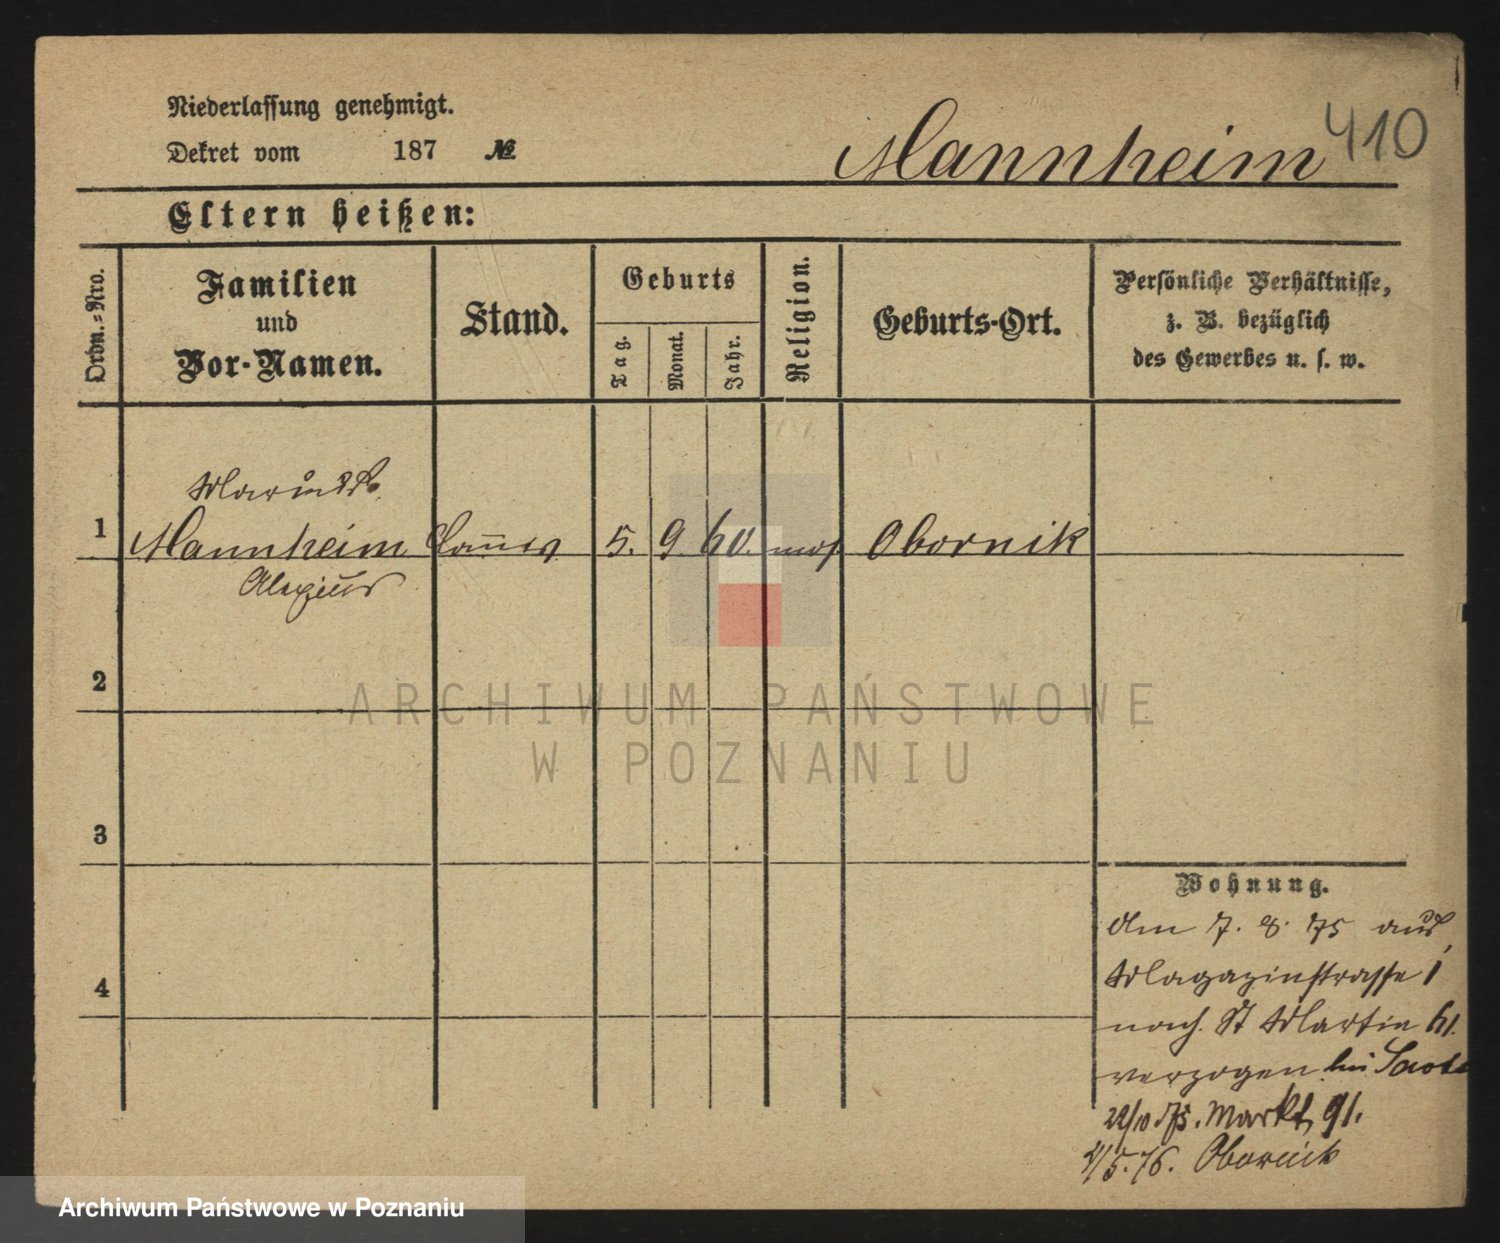 Niederlassung genehmigt.
410
Dekret vom 187 №
Mannheim
Eltern heißen:
Ordn.-Nro.
Familien
und
Vor-Namen.
Stand.
Geburts
Tag.
Monat.
Jahr.
Religion.
Geburts-Ort.
Persönliche Verhältnisse,
z. B. bezüglich
des Gewerbes u. s. w.
1
Mannheim
5. 9. 60. mos. Obornik
2
ARCHIWUM PAŃSTWOWE
W POZNANIU
3
Wohnung.
4
den 7. 8. 75 aus
Magazinstrasse 1
nach St Martin 61.
verzogen bei
22/10 75. Markt 91.
2/5.76. Obornik
Archiwum Państwowe w Poznaniu